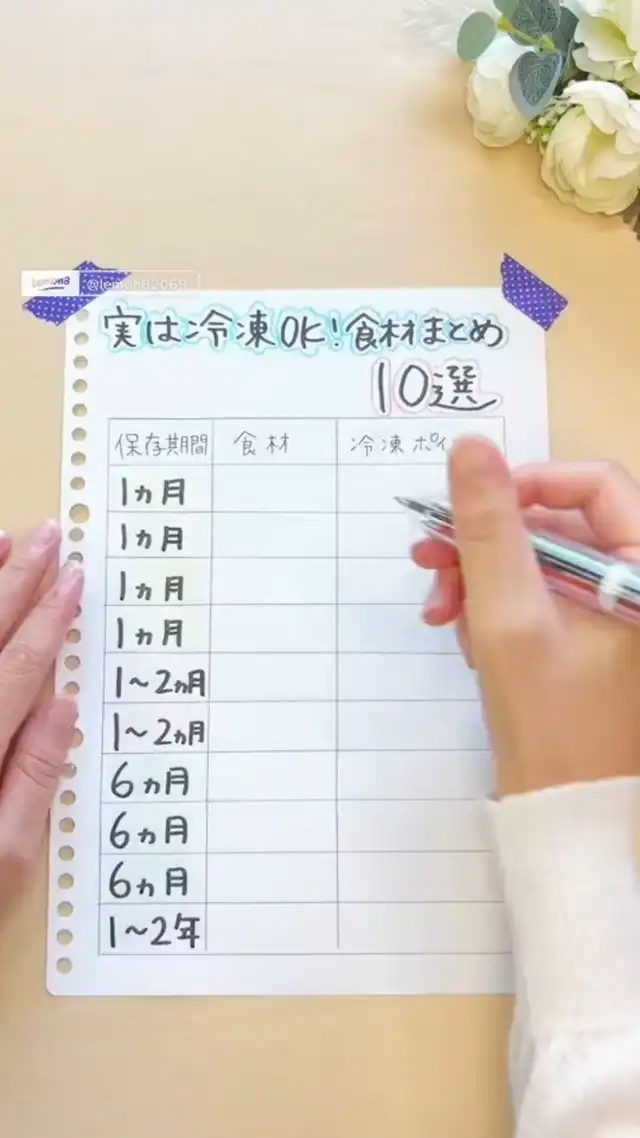 lemon8 @lemon82069
実は冷凍OK!食材まとめ
10選
保存期間 食材 冷凍ポイ
1ヵ月
1ヵ月
1ヵ月
1ヵ月
1〜2ヵ月
1〜2ヵ月
6ヵ月
6ヵ月
6ヵ月
1〜2年